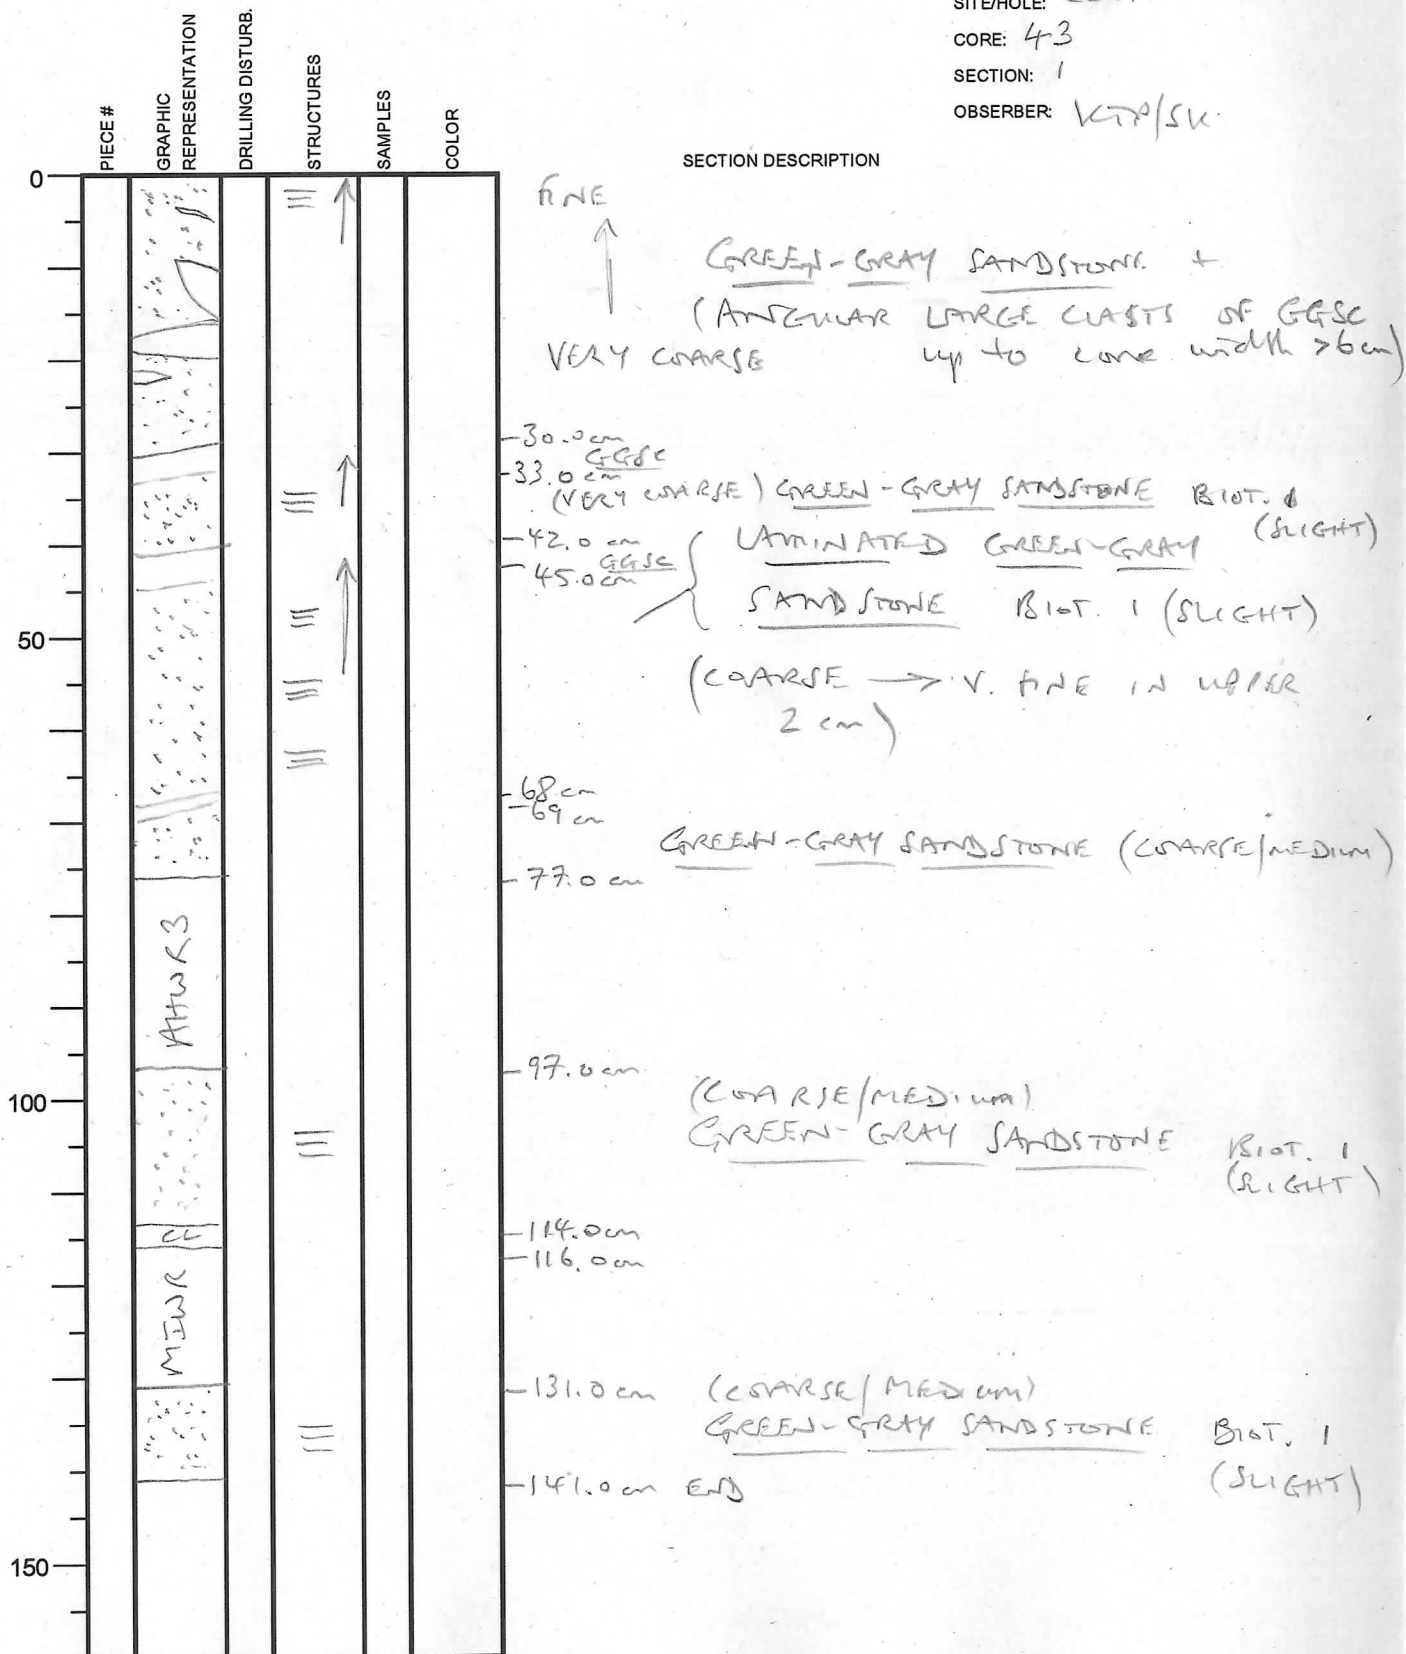 SITE/HOLE:
CORE: 43
SECTION: 1
OBSERBER: KTP/SK
PIECE #
GRAPHIC
REPRESENTATION
DRILLING DISTURB.
STRUCTURES
SAMPLES
COLOR
SECTION DESCRIPTION
0
FINE
GREEN-GRAY SANDSTONE +
(ANGULAR LARGE CLASTS OF GGSC
VERY COARSE up to core width >6cm)
30.0cm
GGSC
33.0 cm
(VERY COARSE) GREEN-GRAY SANDSTONE BIOT. 1
(SLIGHT)
42.0 cm LAMINATED GREEN-GRAY
GGSC
45.0cm
SANDSTONE BIOT. 1 (SLIGHT)
50
(COARSE → V. FINE IN UPPER
2 cm)
68 cm
69 cm
GREEN-GRAY SANDSTONE (COARSE/MEDIUM)
77.0 cm
AHWR3
97.0 cm
100
(COARSE/MEDIUM)
GREEN-GRAY SANDSTONE BIOT. 1
(SLIGHT)
CC
114.0cm
116.0cm
MIWR
131.0 cm (COARSE/MEDIUM)
GREEN-GRAY SANDSTONE BIOT. 1
(SLIGHT)
141.0 cm END
150